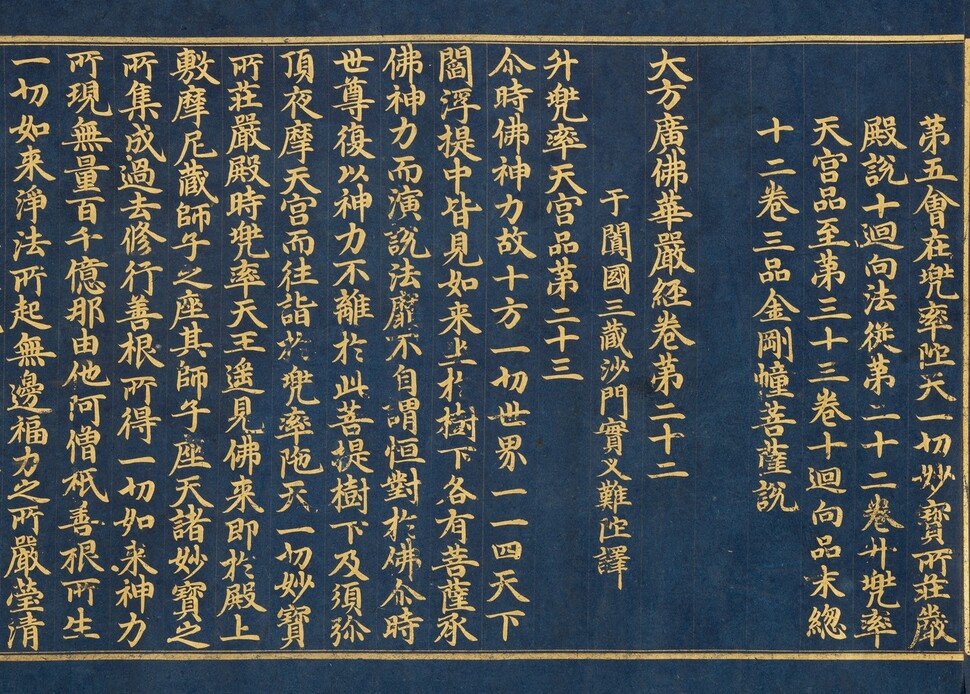 第五會在兠率陁天一切妙寶所莊嚴
殿說十迴向法從第二十二卷升兠率
天宮品至第三十三卷十迴向品末緫
十二卷三品金剛幢菩薩說
大方廣佛華嚴經卷第二十二
于闐國三藏沙門實叉難陁譯
升兠率天宮品第二十三
尒時佛神力故十方一切世界一一四天下
閻浮提中皆見如来坐於樹下各有菩薩承
佛神力而演說法靡不自謂恒對於佛尒時
世尊復以神力不離於此菩提樹下及須弥
頂夜摩天宮而往詣於兠率陁天一切妙寶
所莊嚴殿時兠率天王遥見佛来即於殿上
敷摩尼藏師子之座其師子座天諸妙寶之
所集成過去修行善根所得一切如来神力
所現無量百千億那由他阿僧祇善根所生
一切如来淨法所起無邊福力之所嚴瑩清